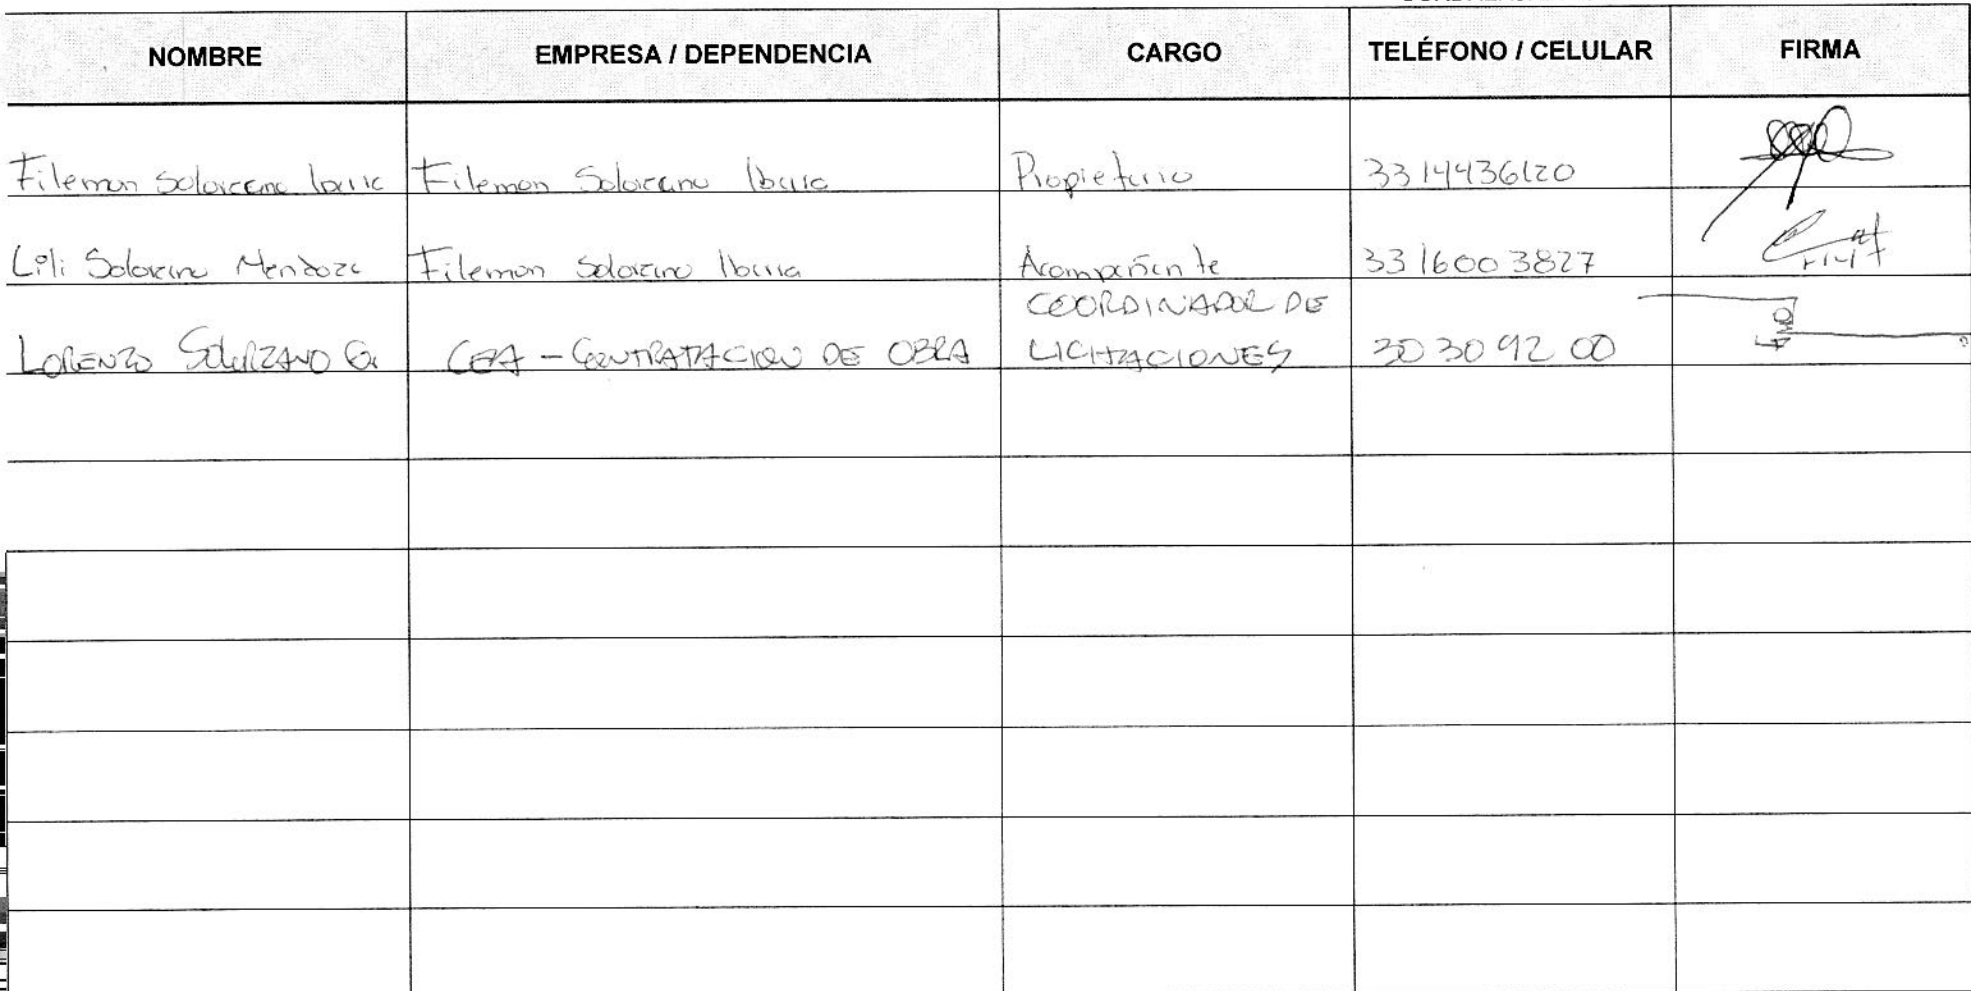 NOMBRE EMPRESA / DEPENDENCIA CARGO TELÉFONO / CELULAR FIRMA
Filemon Solorzano Ibarra Filemon Solorzano Ibarra Propietario 3314436120
Lili Solorzano Mendoza Filemon Solorzano Ibarra Acompañante 3316003827
COORDINADOR DE
LORENZO SOLORZANO G. CEA - CONTRATACION DE OBRA LICITACIONES 30309200